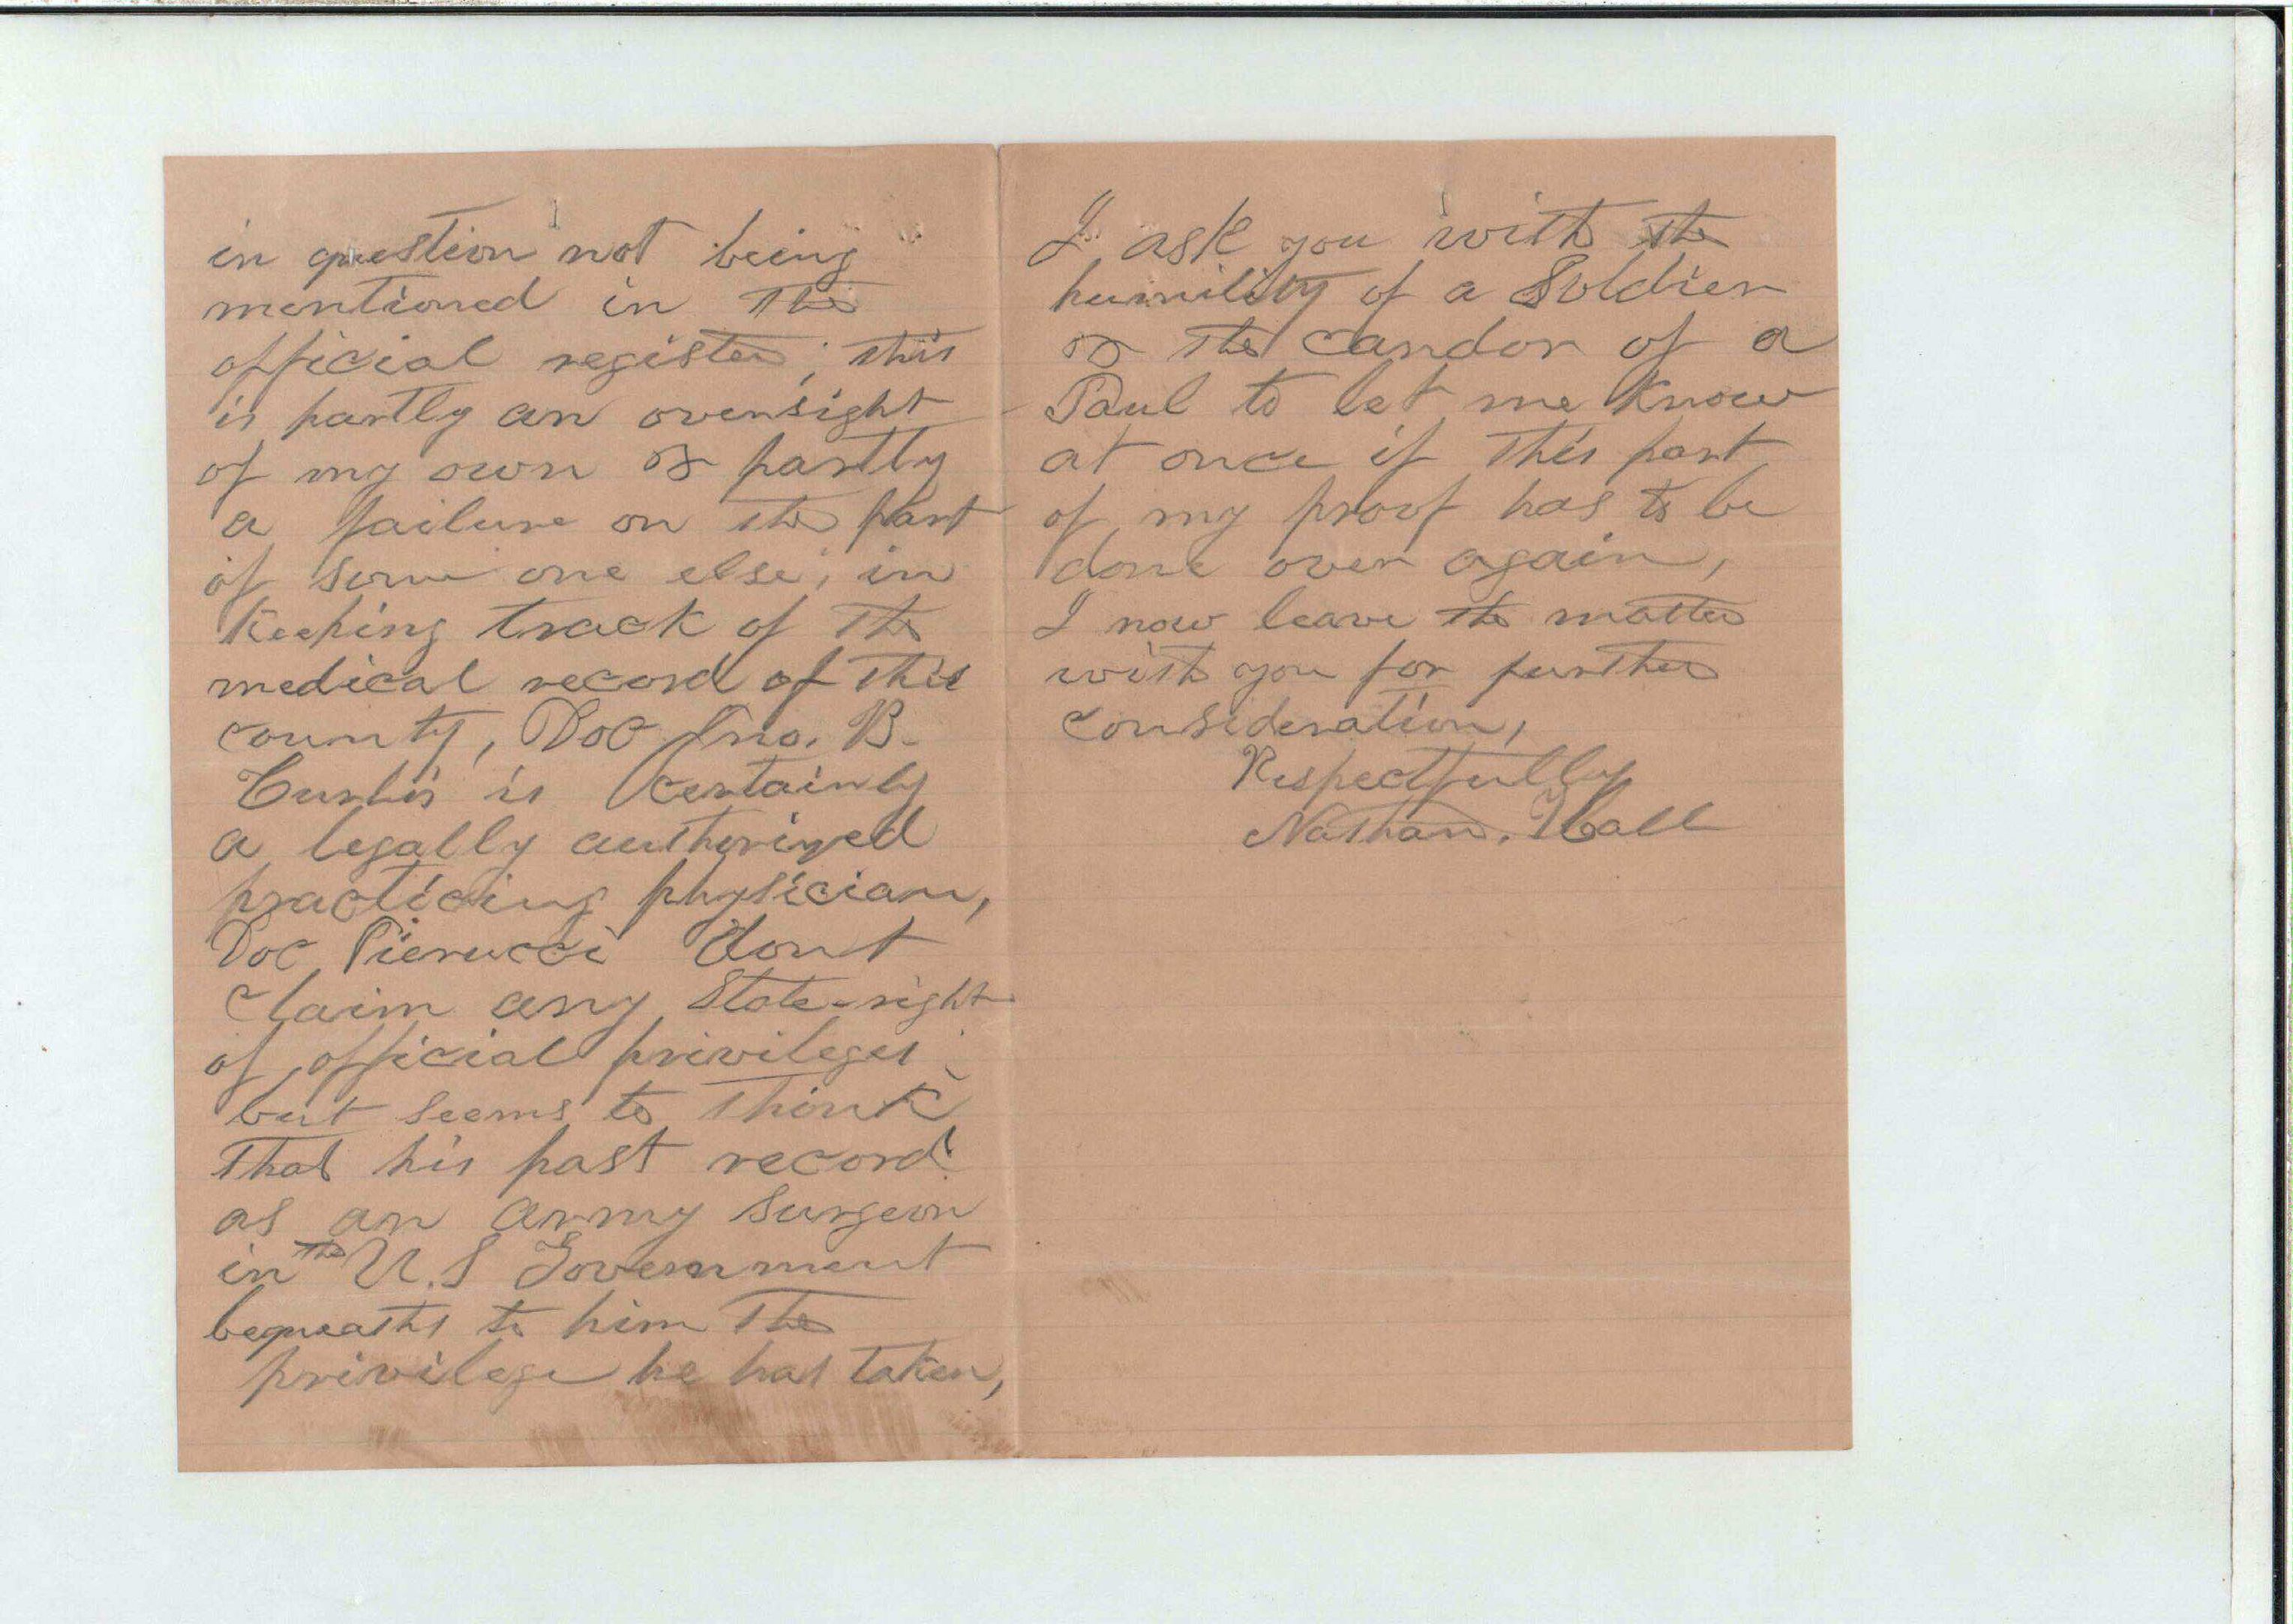 in question not being
mentioned in the
official register; this
is partly an oversight
of my own & partly
a failure on the part
of some one else, in
keeping track of the
medical record of this
county, Doc Jno. B.
Curtis is certainly
a legally authorized
practicing physician,
Doc Pierucci dont
claim any State-right
of official privileges;
but seems to think
that his past record
as an army surgeon
in the U.S Government
bequeaths to him the
privilege he has taken,
I ask you with the
humility of a Soldier
& the candor of a
Paul to let me know
at once if this part
of my proof has to be
done over again,
I now leave the matter
with you for further
consideration,
Respectfully
Nathan. Hall